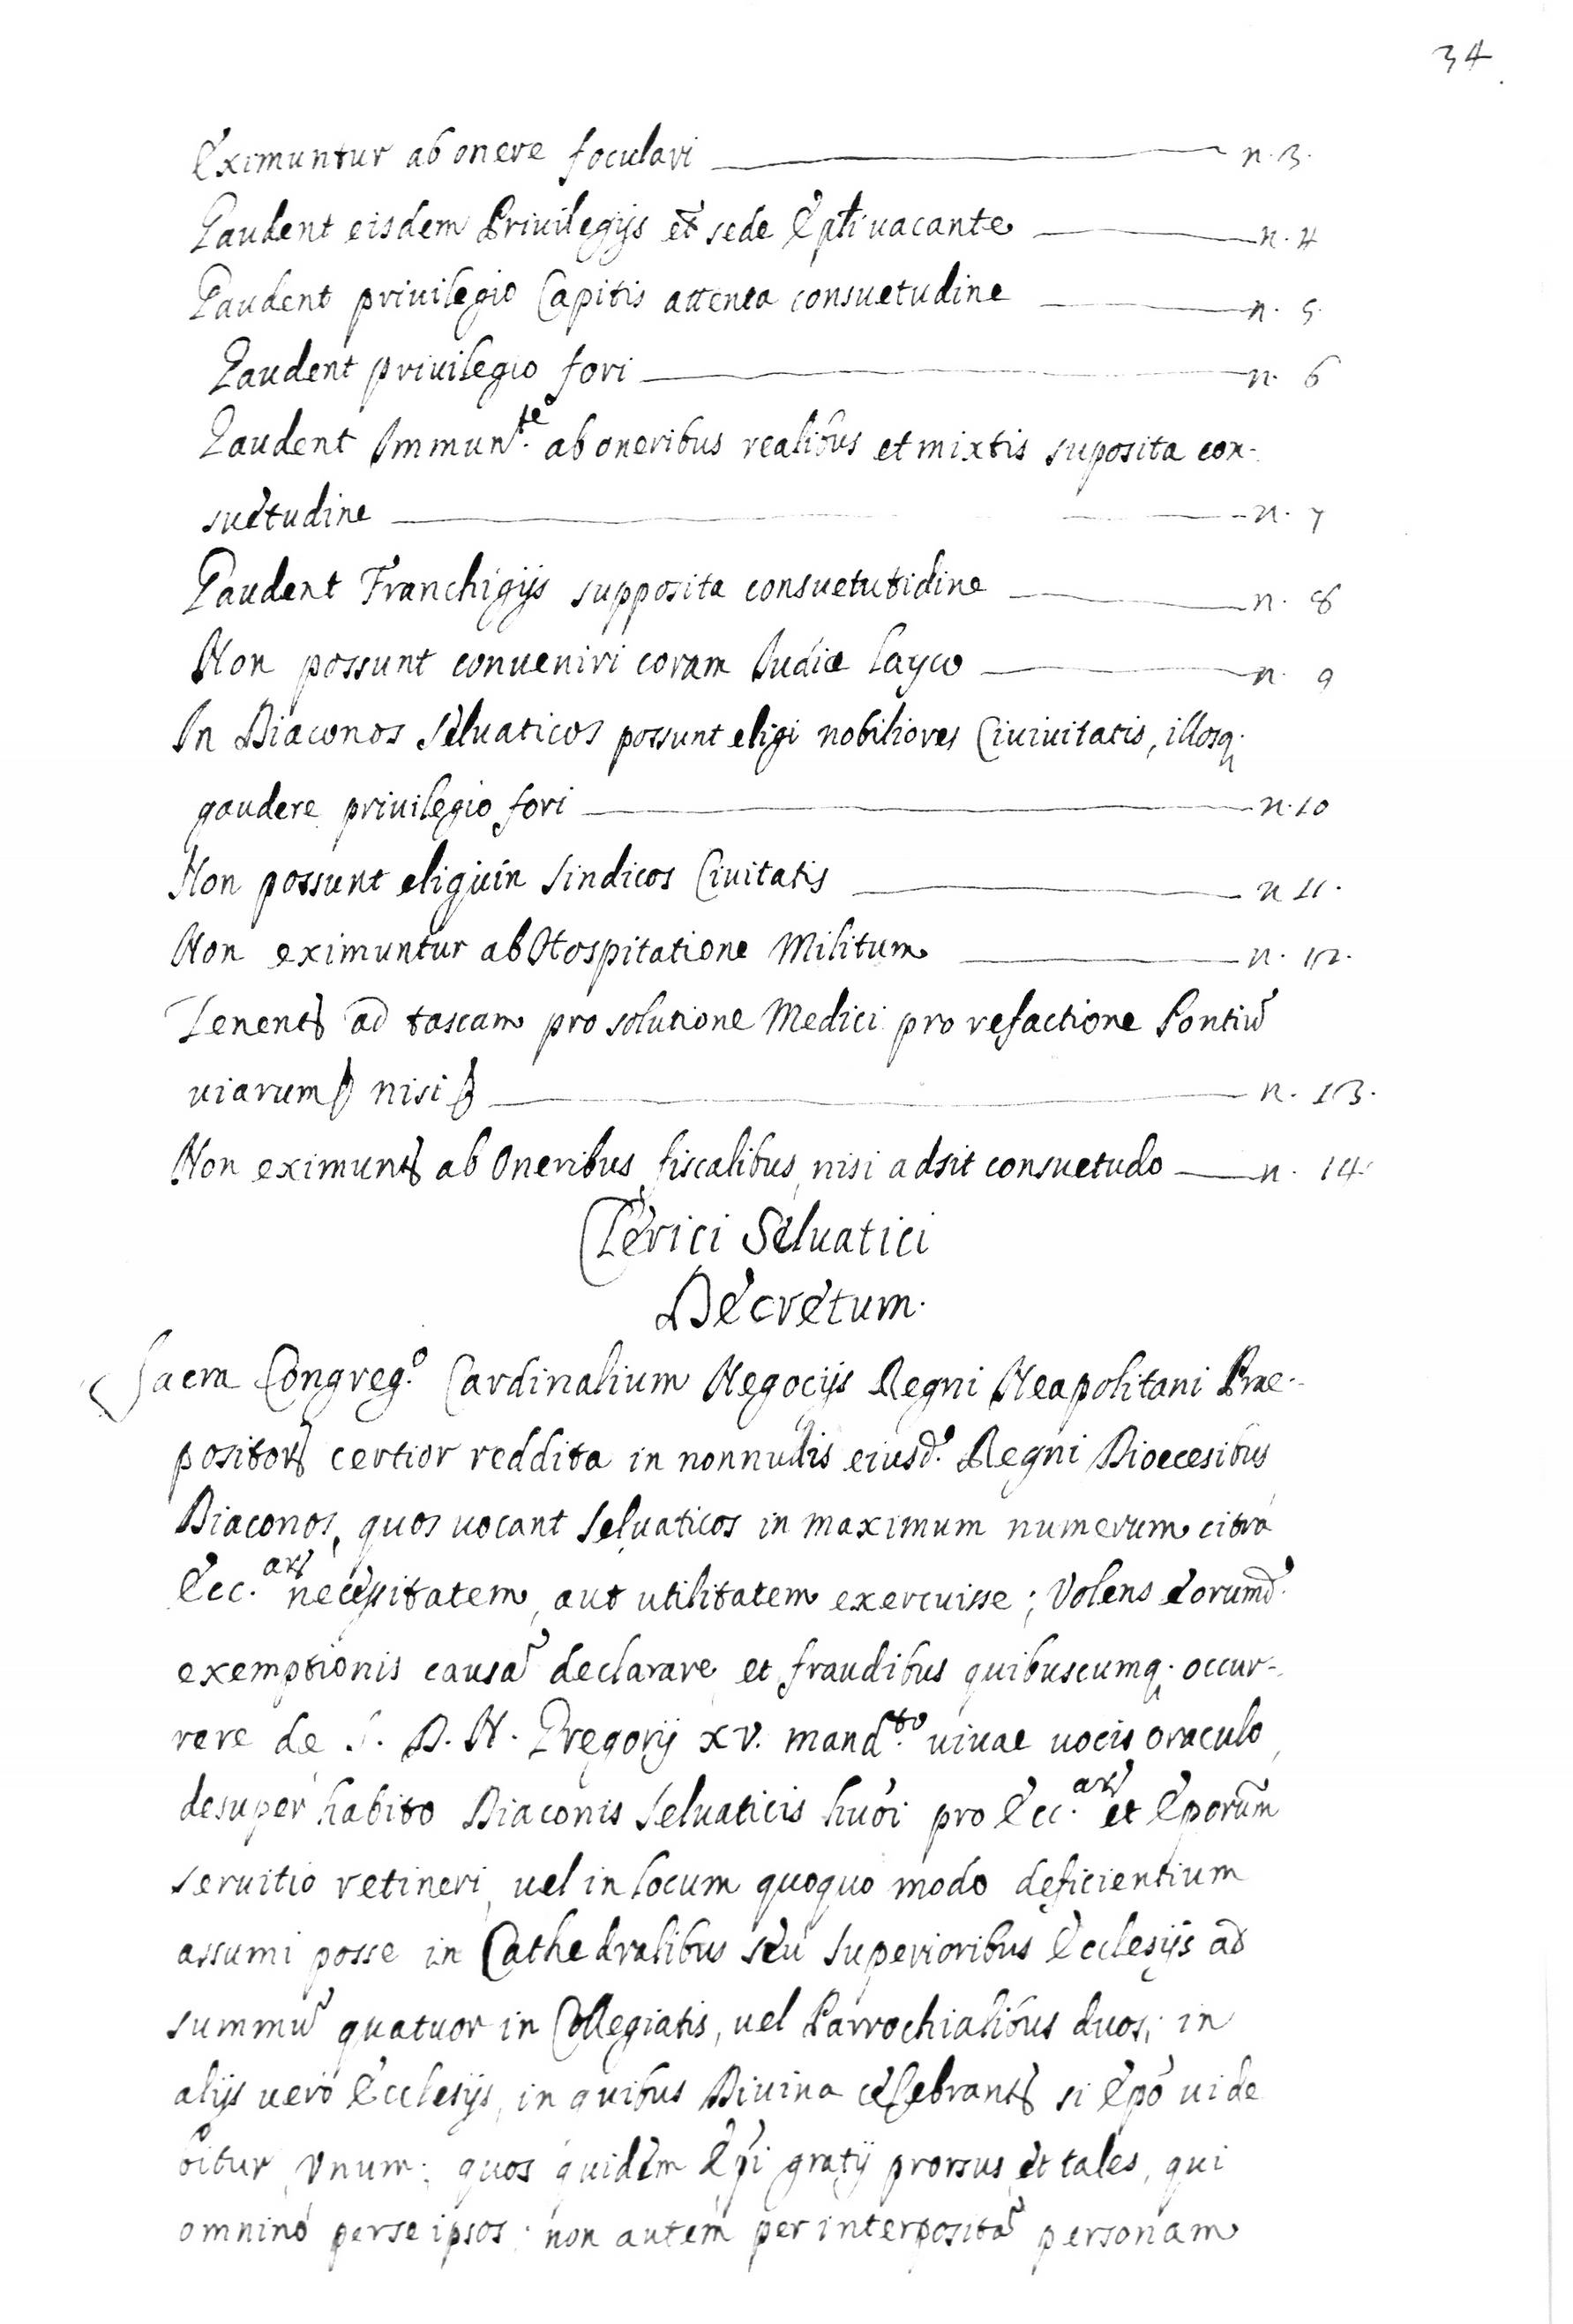 34
Eximuntur ab onere foculari n. 3.
Gaudent eisdem Privilegijs et sede Epli vacante n. 4
Gaudent privilegio Capitis attenta consuetudine n. 5.
Gaudent privilegio fori n. 6
Gaudent Immun.te ab oneribus realibus et mixtis suposita con-
suetudine n. 7
Gaudent Franchigijs supposita consuetutidine n. 8
Non possunt conveniri coram Judice Layco n. 9
In Diaconos Seluaticos possunt eligi nobiliores Civivitatis, illosq.
gaudere privilegio fori n. 10
Non possunt eligi in Sindicos Civitatis n 11.
Non eximuntur ab Hospitatione Militum n. 12.
Tenentr ad tascam pro solutione Medici pro refactione Pontiũ
viarum nisi n. 13.
Non eximuntr ab Oneribus fiscalibus, nisi adsit consuetudo n. 14.
Clerici Seluatici
Decretum.
Sacra Congreg.o Cardinalium Negocijs Regni Neapolitani Prae-
positor certior reddita in nonnullis eiusd. Regni Dioecesibus
Diaconos, quos vocant Seluaticos in maximum numerum citra
Ecc.ar necessitatem, aut utilitatem exercuisse; Volens eorumd.
exemptionis causã declarare, et fraudibus quibuscumq. occur-
rere de S. D. N. Gregorij XV. mand.to vivae vocis oraculo
desuper habito Diaconis Seluaticis huõi pro Ecc.ar et Eporum
servitio retineri, vel in locum quoquo modo deficientium
assumi posse in Cathedralibus seu Superioribus Ecclesijs ad
summũ quatuor in Collegiatis, vel Parrochialibus duos; in
alijs verò Ecclesijs, in quibus Divina celebrantr si Epo vide
bitur Vnum; quos quidem Epi gratij prorsus et tales, qui
omninò per se ipsos; non autem per interpositã personam